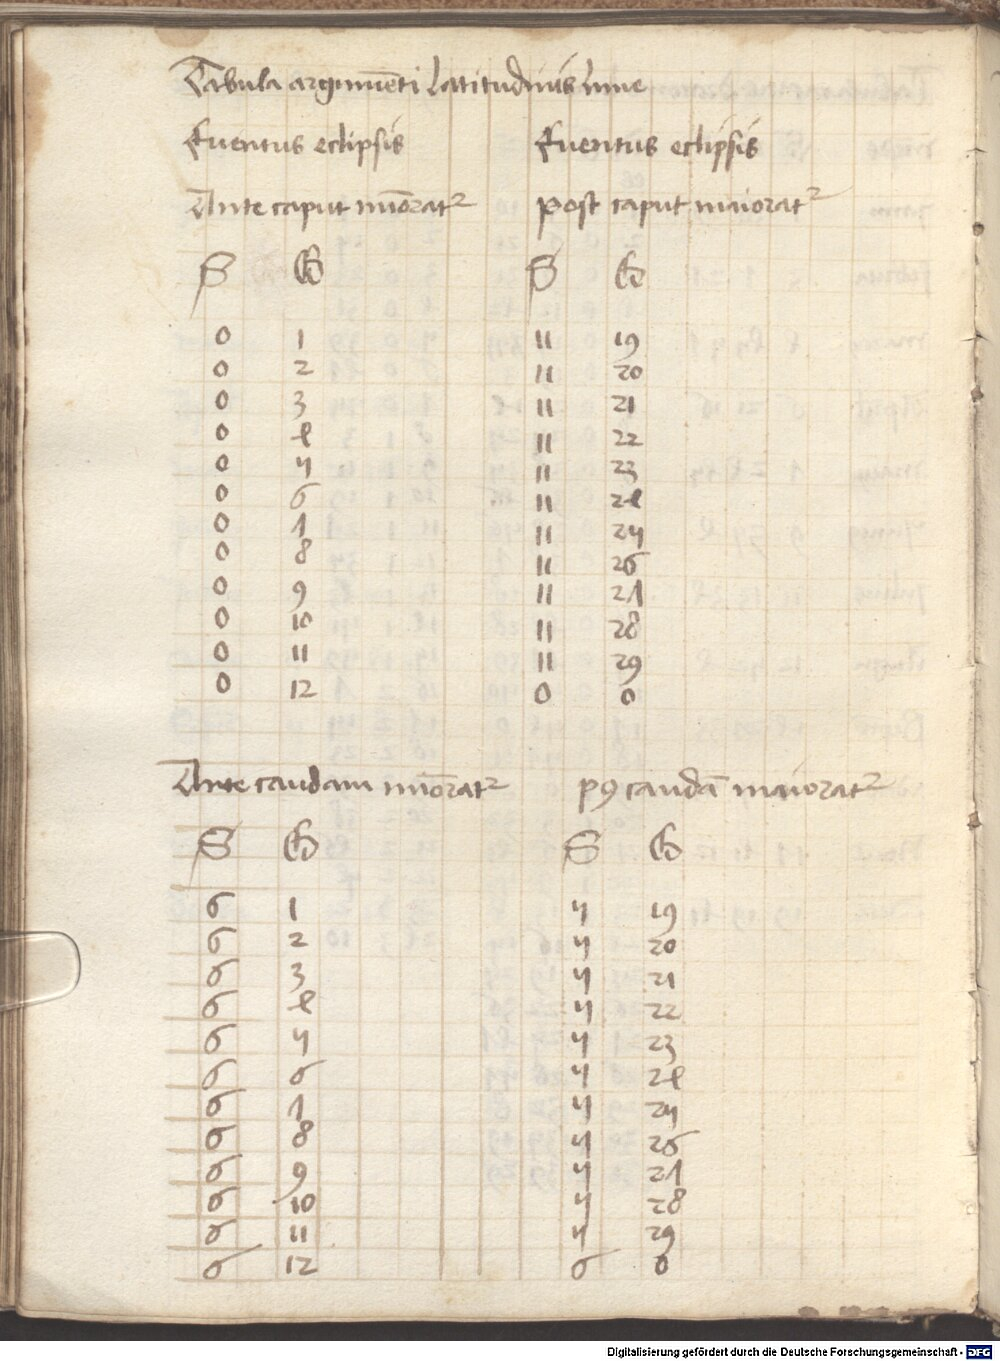 Tabula argumenti latitudinis lune
Euentus eclipsis Euentus eclipsis
Ante caput minorat² post caput maiorat²
S G S G
0 1 11 19
0 2 11 20
0 3 11 21
0 4 11 22
0 5 11 23
0 6 11 24
0 7 11 25
0 8 11 26
0 9 11 27
0 10 11 28
0 11 11 29
0 12 0 0
Ante caudam minorat² p9 caudā maiorat²
S G S G
6 1 5 19
6 2 5 20
6 3 5 21
6 4 5 22
6 5 5 23
6 6 5 24
6 7 5 25
6 8 5 26
6 9 5 27
6 10 5 28
6 11 5 29
6 12 6 0
Digitalisierung gefördert durch die Deutsche Forschungsgemeinschaft - DFG